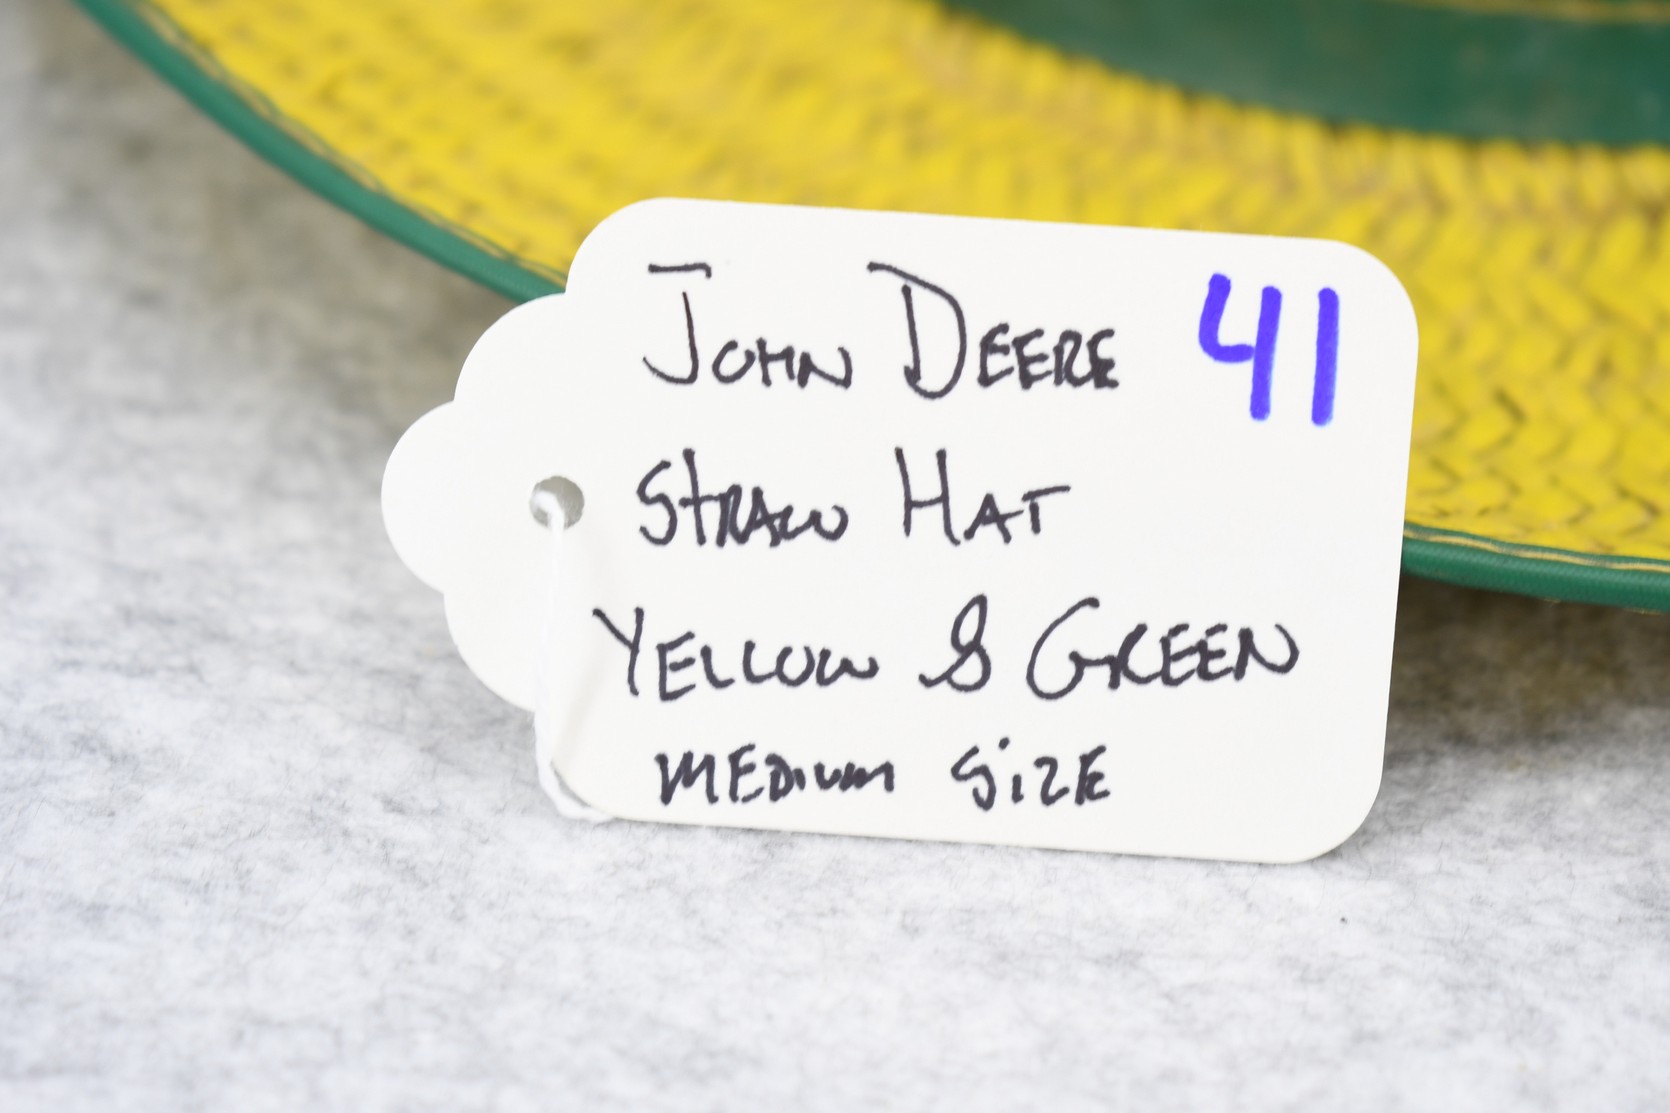 John Deere 41
Straw Hat
Yellow & Green
Medium Size